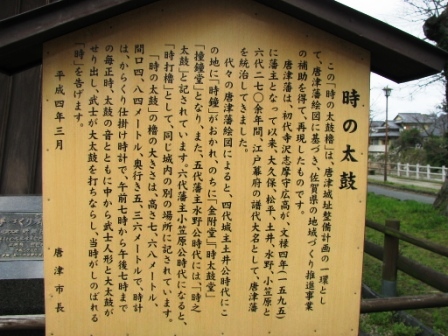 時の太鼓
この「時の太鼓櫓」は、唐津城址整備計画の一環とし
て、唐津藩絵図に基づき、佐賀県の地域づくり推進事業
の補助を得て、再現したものです。
唐津藩は、初代寺沢志摩守広高が、文禄四年(一五九五)
に藩主となって以来、大久保、松平、土井、水野、小笠原と
六代二七〇余年間、江戸幕府の譜代大名として、唐津藩
を統治してきました。
代々の唐津藩絵図によると、四代城主土井公時代にこ
の地に「時鐘」がおかれ、のちに「金附堂」「時太鼓堂」
「撞鐘堂」となり、また、五代藩主水野公時代には「時之
太鼓」と記されています。六代藩主小笠原公時代になると、
「時打櫓」として、同じ城内の別の場所に記されています。
「時の太鼓」の櫓の大きさは、高さ七.六八メートル、
間口四.八四メートル、奥行き五.三六メートルで、時計
は、からくり仕掛け時計で、午前七時から午後七時まで
の毎正時、太鼓の音とともに中から武士人形と大太鼓が
せり出し、武士が大太鼓を打ちならし、当時がしのばれる
「時」を告げます。
平成四年三月
唐津市長